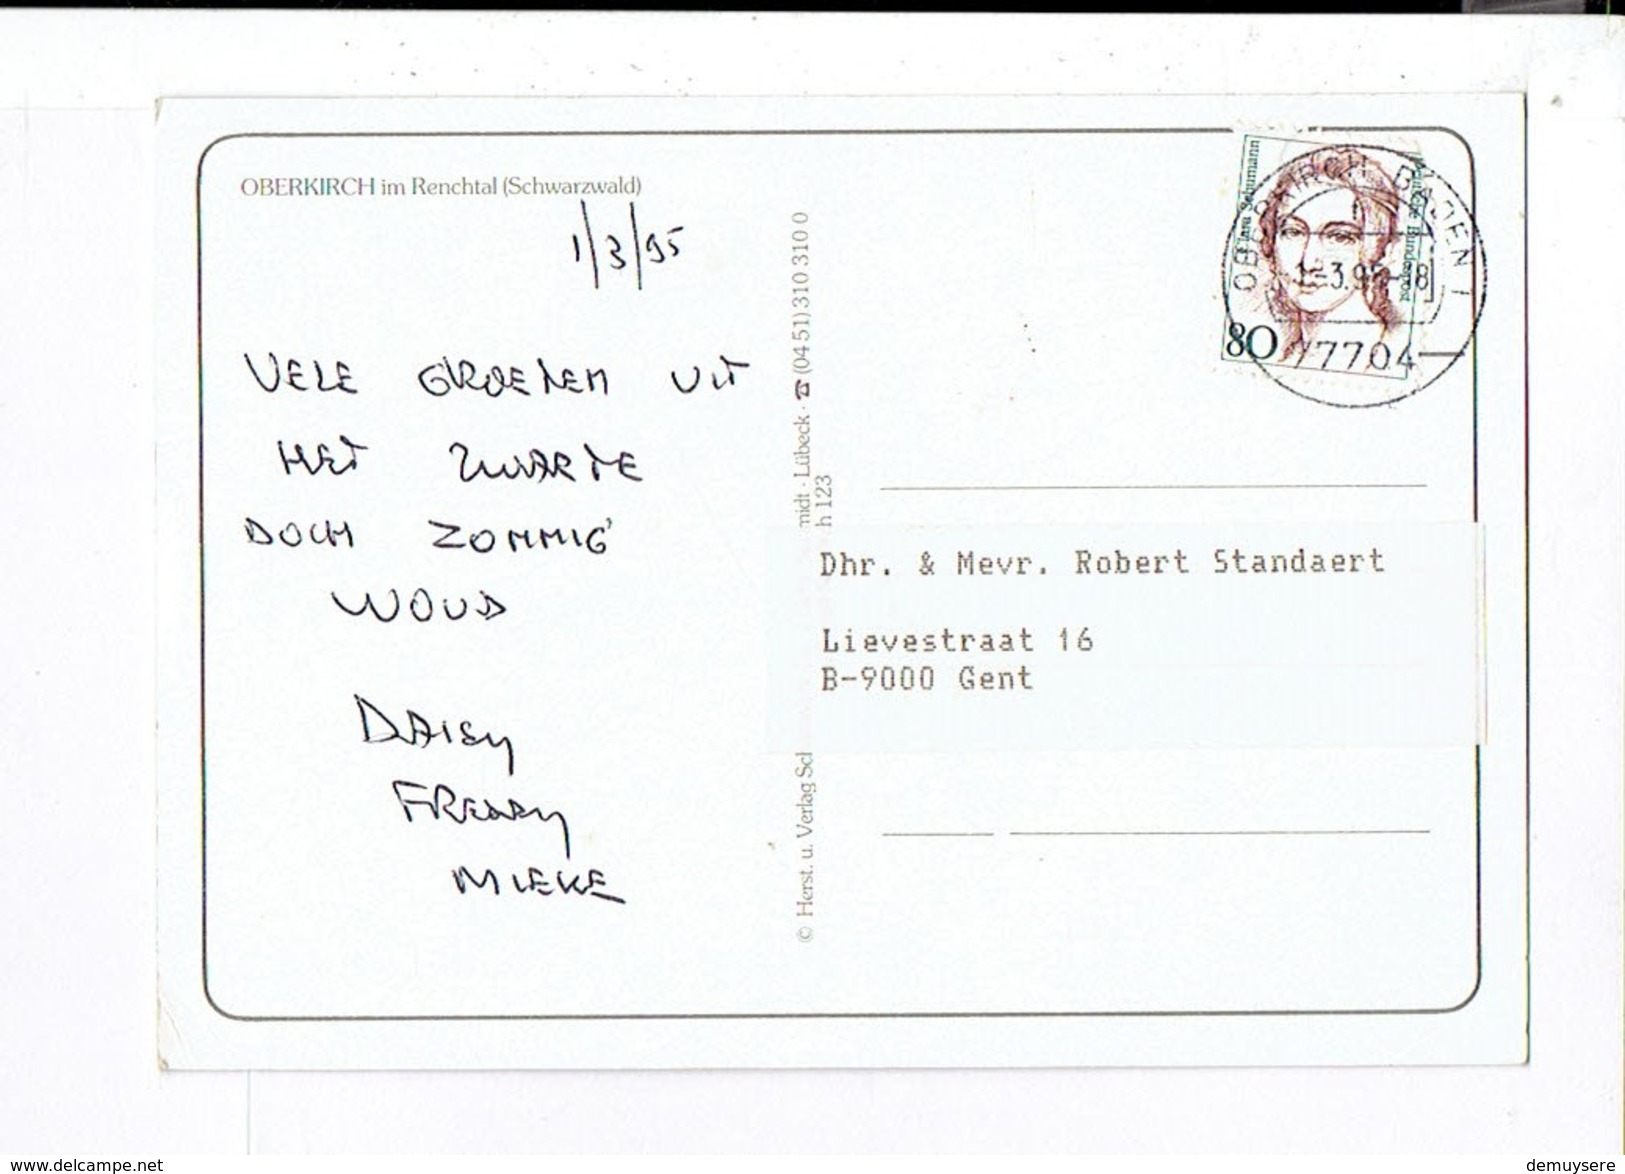 OBERKIRCH im Renchtal (Schwarzwald)
1/3/95
VELE GROETEN UIT
HET ZWARTE
DOCH ZONNIG
WOUD
DAISY
FREDDY
MIEKE
© Herst. u. Verlag Sc
midt · Lübeck · ☎ (04 51) 310 310 0
h 123
Clara Schumann
Deutsche Bundespost
80
OBERKIRCH, BADEN 1
-1.-3.95-18
77704
Dhr. & Mevr. Robert Standaert
Lievestraat 16
B-9000 Gent
www.delcampe.net
demuysere